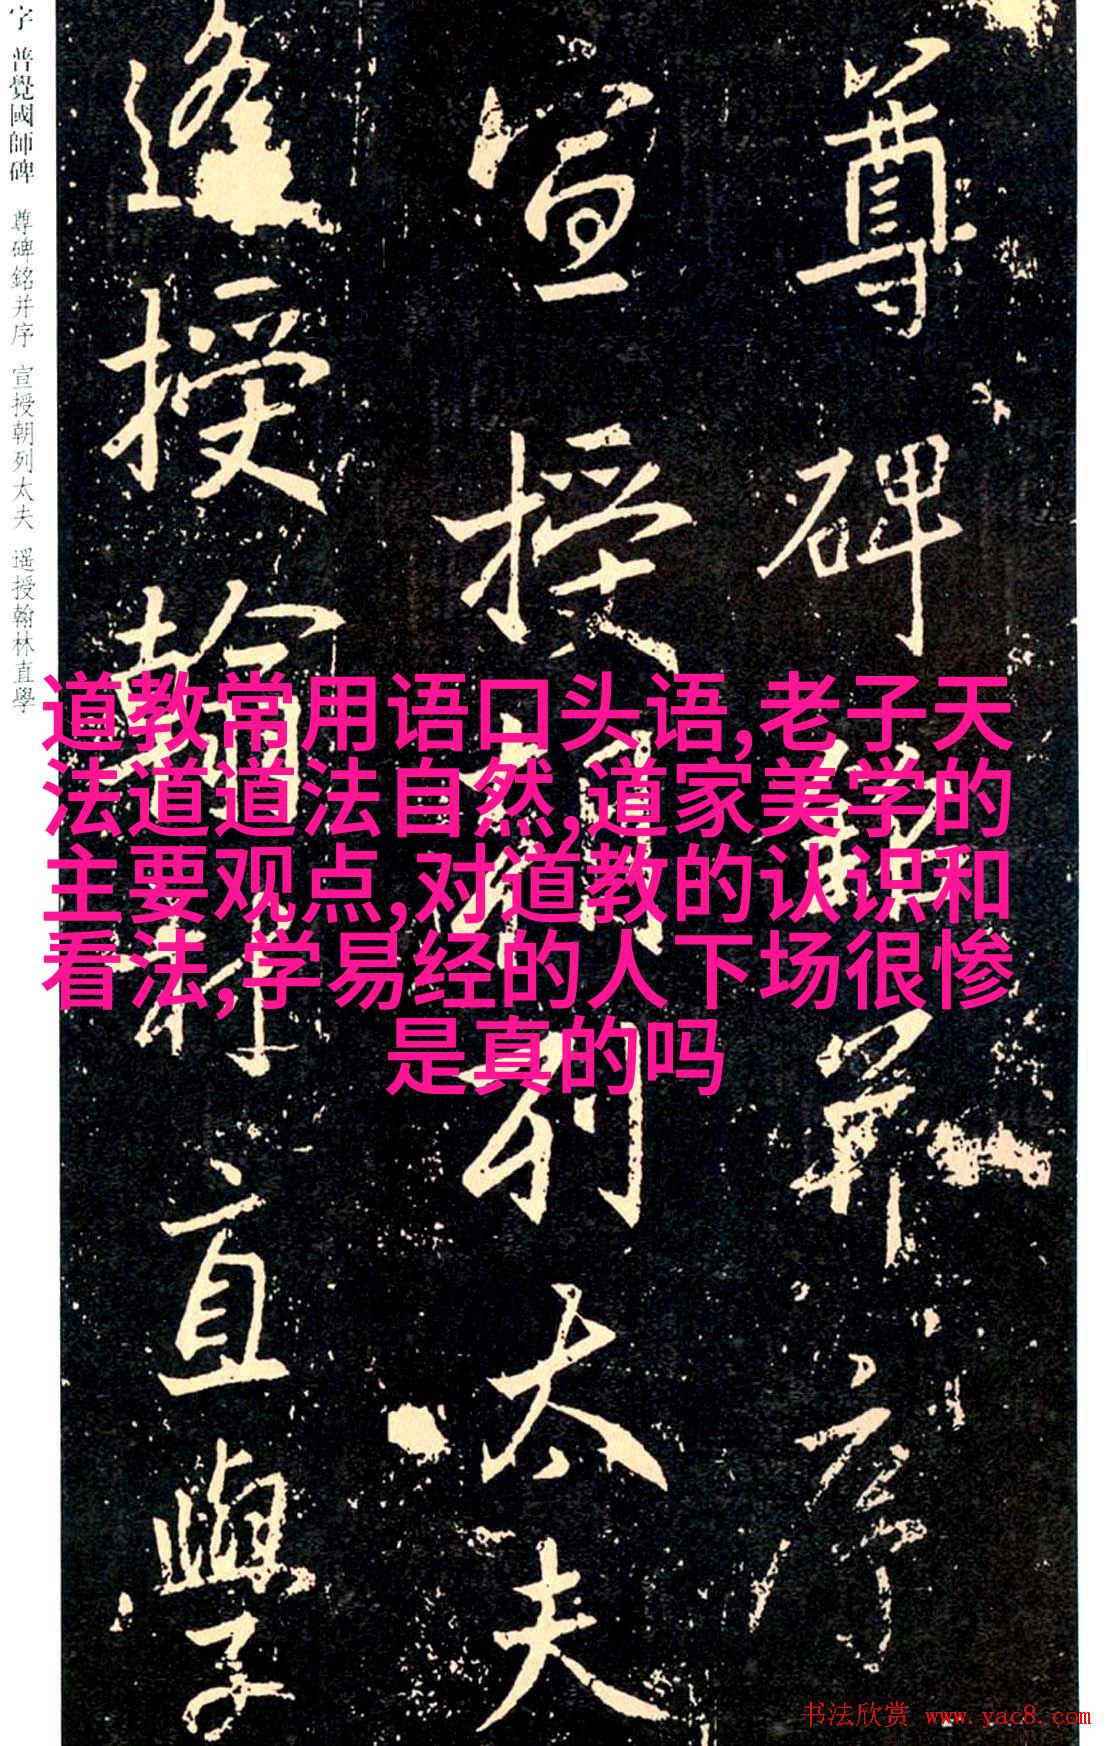 尊碑銘并序
宣授朝列太夫
遥授翰林直學
字 普覺國師碑 尊碑銘并序 宣授朝列太夫 遥授翰林直學
道教常用语口头语,老子天
法道道法自然,道家美学的
主要观点,对道教的认识和
看法,学易经的人下场很惨
是真的吗
书法欣赏 www.yac8.com